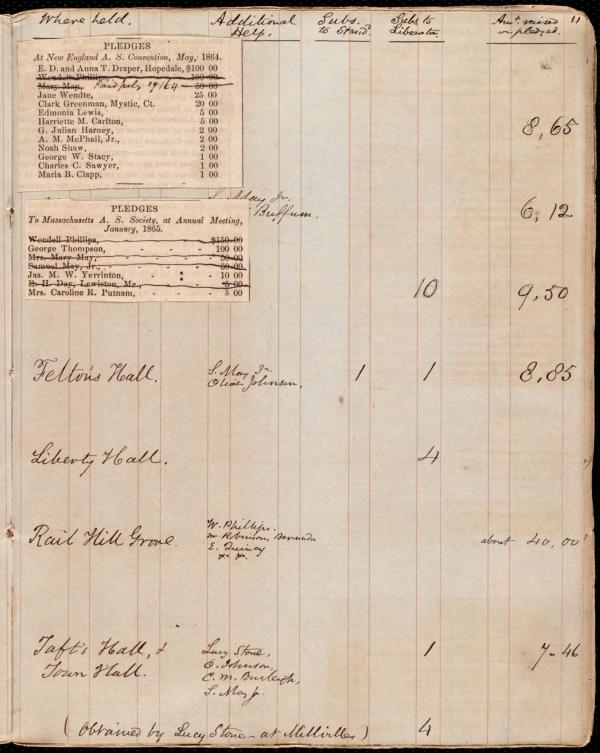 Where held. Additional Help. Subs. to Stand.d Subs to Liberator. Am.t raised or pledged. 11
PLEDGES
At New England A. S. Convention, May, 1864.
E. D. and Anna T. Draper, Hopedale, $100 00
Wendell Phillips, 100 00
Mary May, 50 00
Jane Wendte, 25 00
Clark Greenman, Mystic, Ct. 20 00
Edmonia Lewis, 5 00
Harriette M. Carlton, 5 00
G. Julian Harney, 2 00
A. M. McPhail, Jr., 2 00
Noah Shaw, 2 00
George W. Stacy, 1 00
Charles C. Sawyer, 1 00
Maria B. Clapp, 1 00
8,65
S. May Jr.
Buffum. 6,12
PLEDGES
To Massachusetts A. S. Society, at Annual Meeting,
January, 1865.
Wendell Phillips, $150 00
George Thompson, 100 00
Mrs. Mary May, 50 00
Samuel May, Jr., 50 00
Jas. M. W. Yerrinton, 10 00
E. H. Day, Lewiston, Me., 5 00
Mrs. Caroline R. Putnam, 5 00
10 9,50
Felton's Hall. S. May Jr. 1 1 8,85
Oliver Johnson.
Liberty Hall. 4
Rail Hill Grove. W. Phillips. about 40,00
E. Quincy
Taft's Hall, & Lucy Stone, 1 7-46
Town Hall. O. Johnson,
C. M. Burleigh,
S. May Jr.
(Obtained by Lucy Stone - at Millville) 4